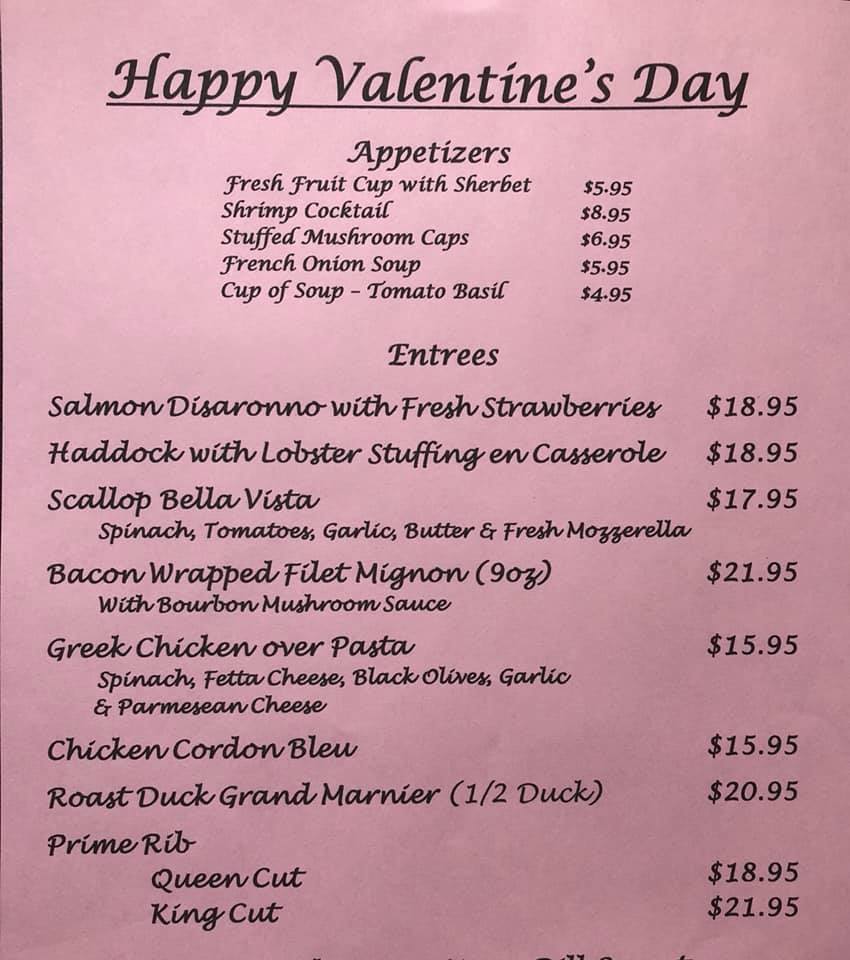 Happy Valentine's Day
Appetizers
Fresh Fruit Cup with Sherbet $5.95
Shrimp Cocktail $8.95
Stuffed Mushroom Caps $6.95
French Onion Soup $5.95
Cup of Soup – Tomato Basil $4.95
Entrees
Salmon Disaronno with Fresh Strawberries $18.95
Haddock with Lobster Stuffing en Casserole $18.95
Scallop Bella Vista $17.95
Spinach, Tomatoes, Garlic, Butter & Fresh Mozzerella
Bacon Wrapped Filet Mignon (9oz) $21.95
With Bourbon Mushroom Sauce
Greek Chicken over Pasta $15.95
Spinach, Fetta Cheese, Black Olives, Garlic
& Parmesean Cheese
Chicken Cordon Bleu $15.95
Roast Duck Grand Marnier (1/2 Duck) $20.95
Prime Rib
Queen Cut $18.95
King Cut $21.95